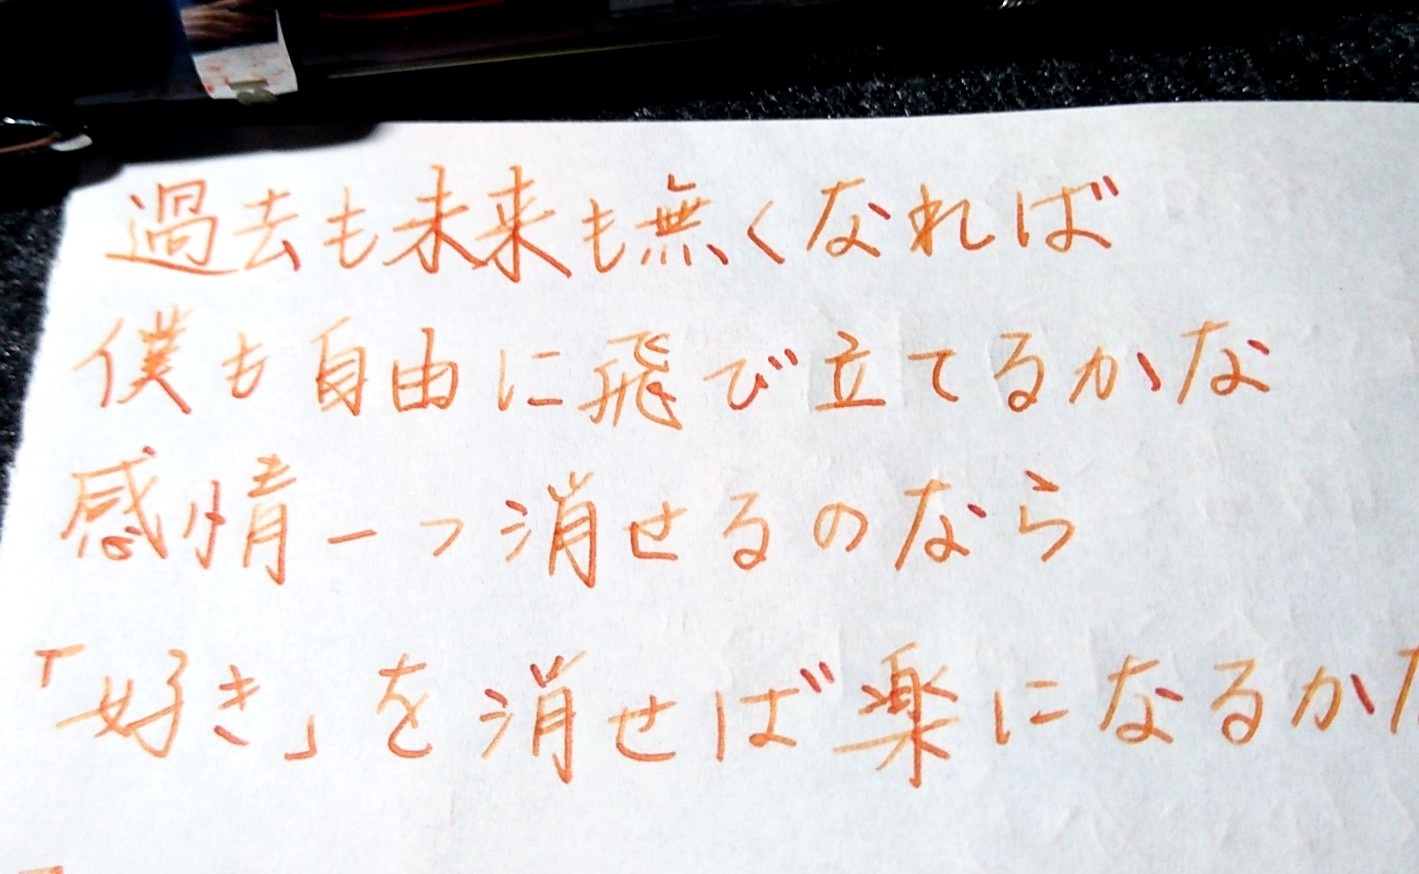 過去も未来も無くなれば
僕も自由に飛び立てるかな
感情一つ消せるのなら
「好き」を消せば楽になるか